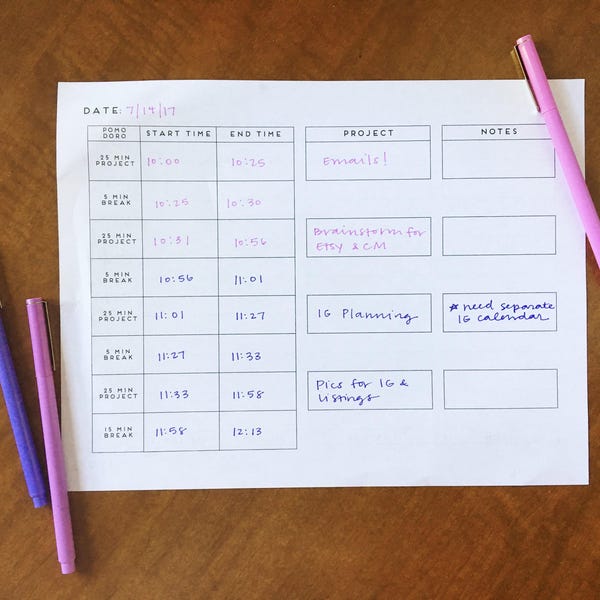 DATE: 7/14/17
POMO
DORO START TIME END TIME PROJECT NOTES
25 MIN
PROJECT 10:00 10:25 Emails!
5 MIN
BREAK 10:25 10:30
25 MIN
PROJECT 10:31 10:56 Brainstorm for
Etsy & CM
5 MIN
BREAK 10:56 11:01
25 MIN
PROJECT 11:01 11:27 IG Planning * need separate
IG calendar
5 MIN
BREAK 11:27 11:33
25 MIN
PROJECT 11:33 11:58 Pics for IG &
listings
15 MIN
BREAK 11:58 12:13